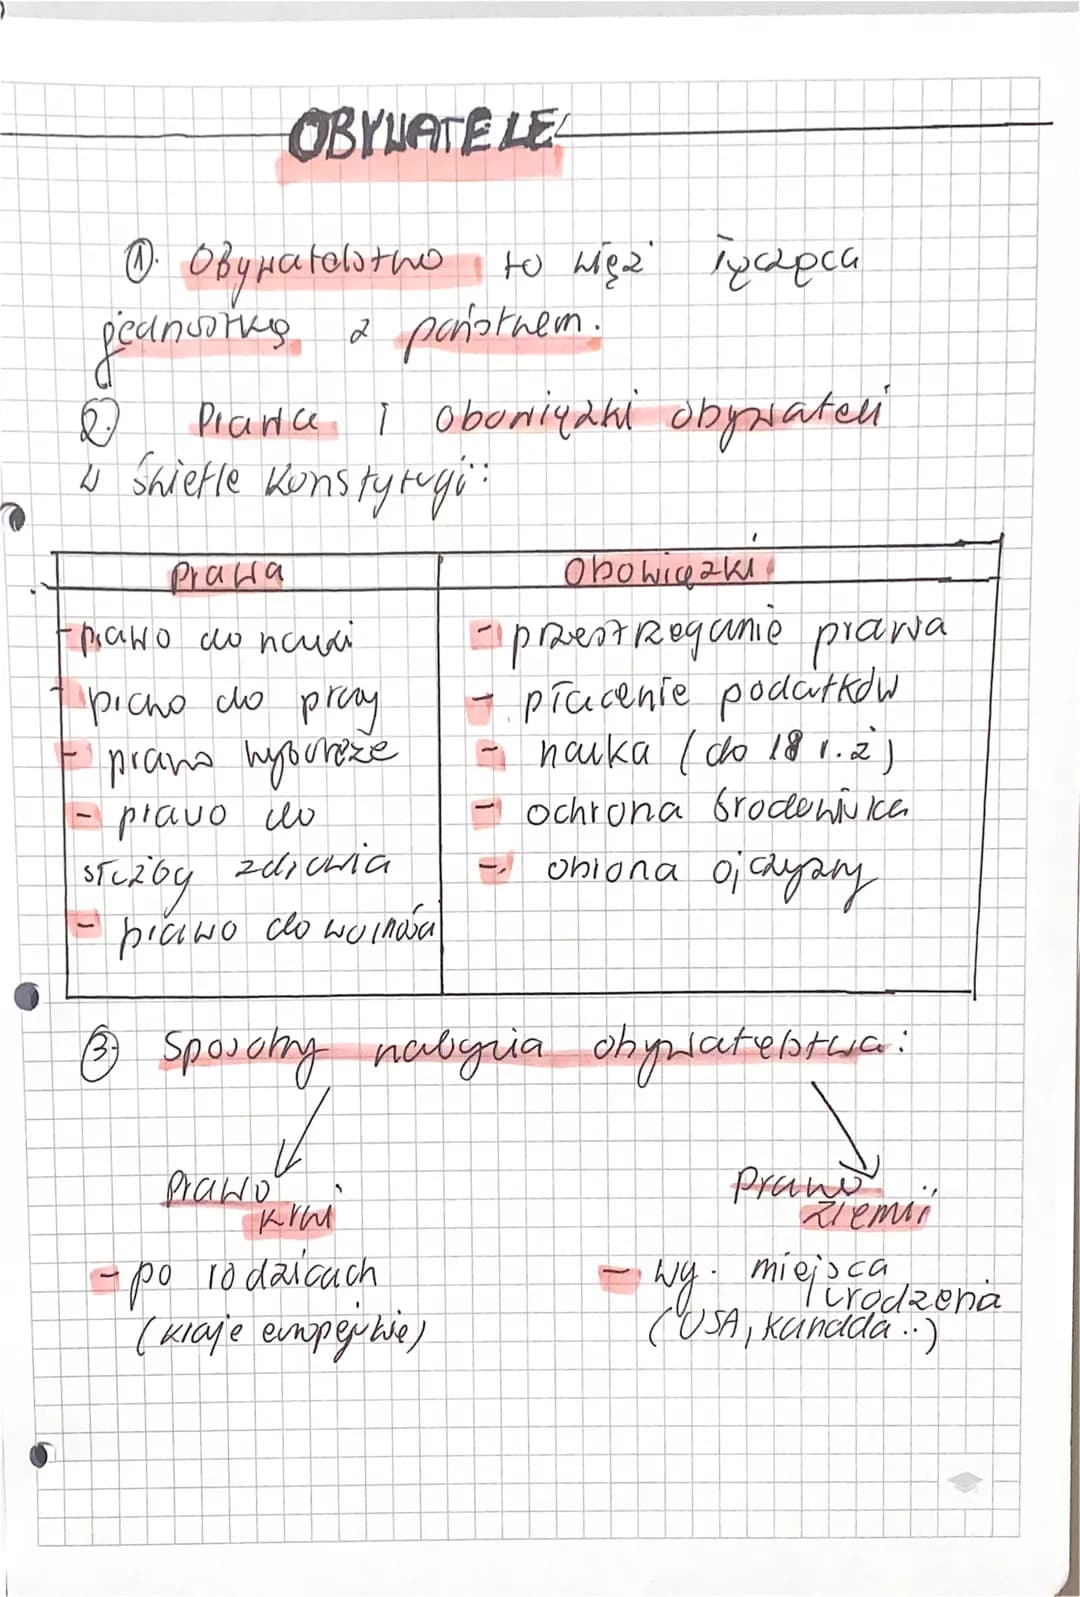 OBYWATELE
1. Obywatelstwo to więź łącząca
jednostkę z państwem.
2. Prawa i obowiązki obywateli
w świetle Konstytucji:
Prawa
Obowiązki
- prawo do nauki
- prawo do pracy
- prawo wyborcze
- prawo do
służby zdrowia
- prawo do wolności
- przestrzeganie prawa
- płacenie podatków
- nauka (do 18 r. ż)
- ochrona środowiska
- obrona ojczyzny
3. Sposoby nabycia obywatelstwa:
Prawo
krwi
- po rodzicach
(kraje europejskie)
Prawo
ziemii
- wg. miejsca
urodzenia
(USA, Kanada..)